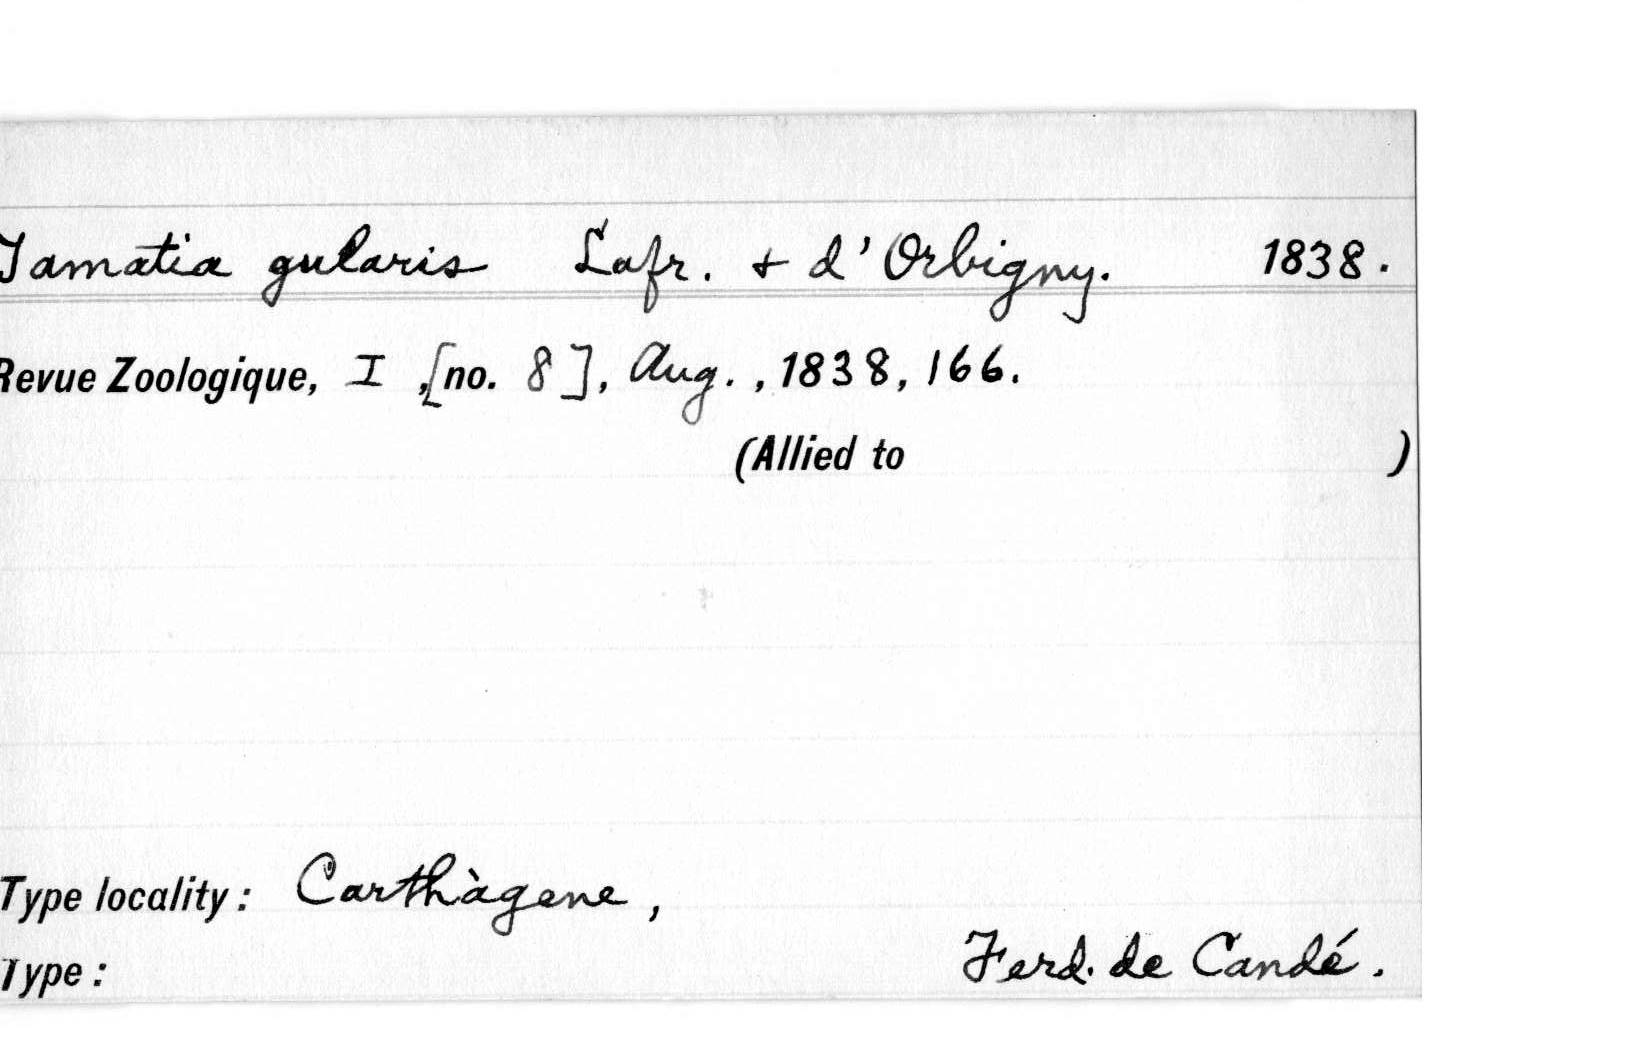 Tamatia gularis Lafr. + d'Orbigny. 1838.
Revue Zoologique, I, [no. 8], Aug., 1838, 166.
(Allied to )
Type locality: Carthàgene,
Ferd. de Candé.
Type: